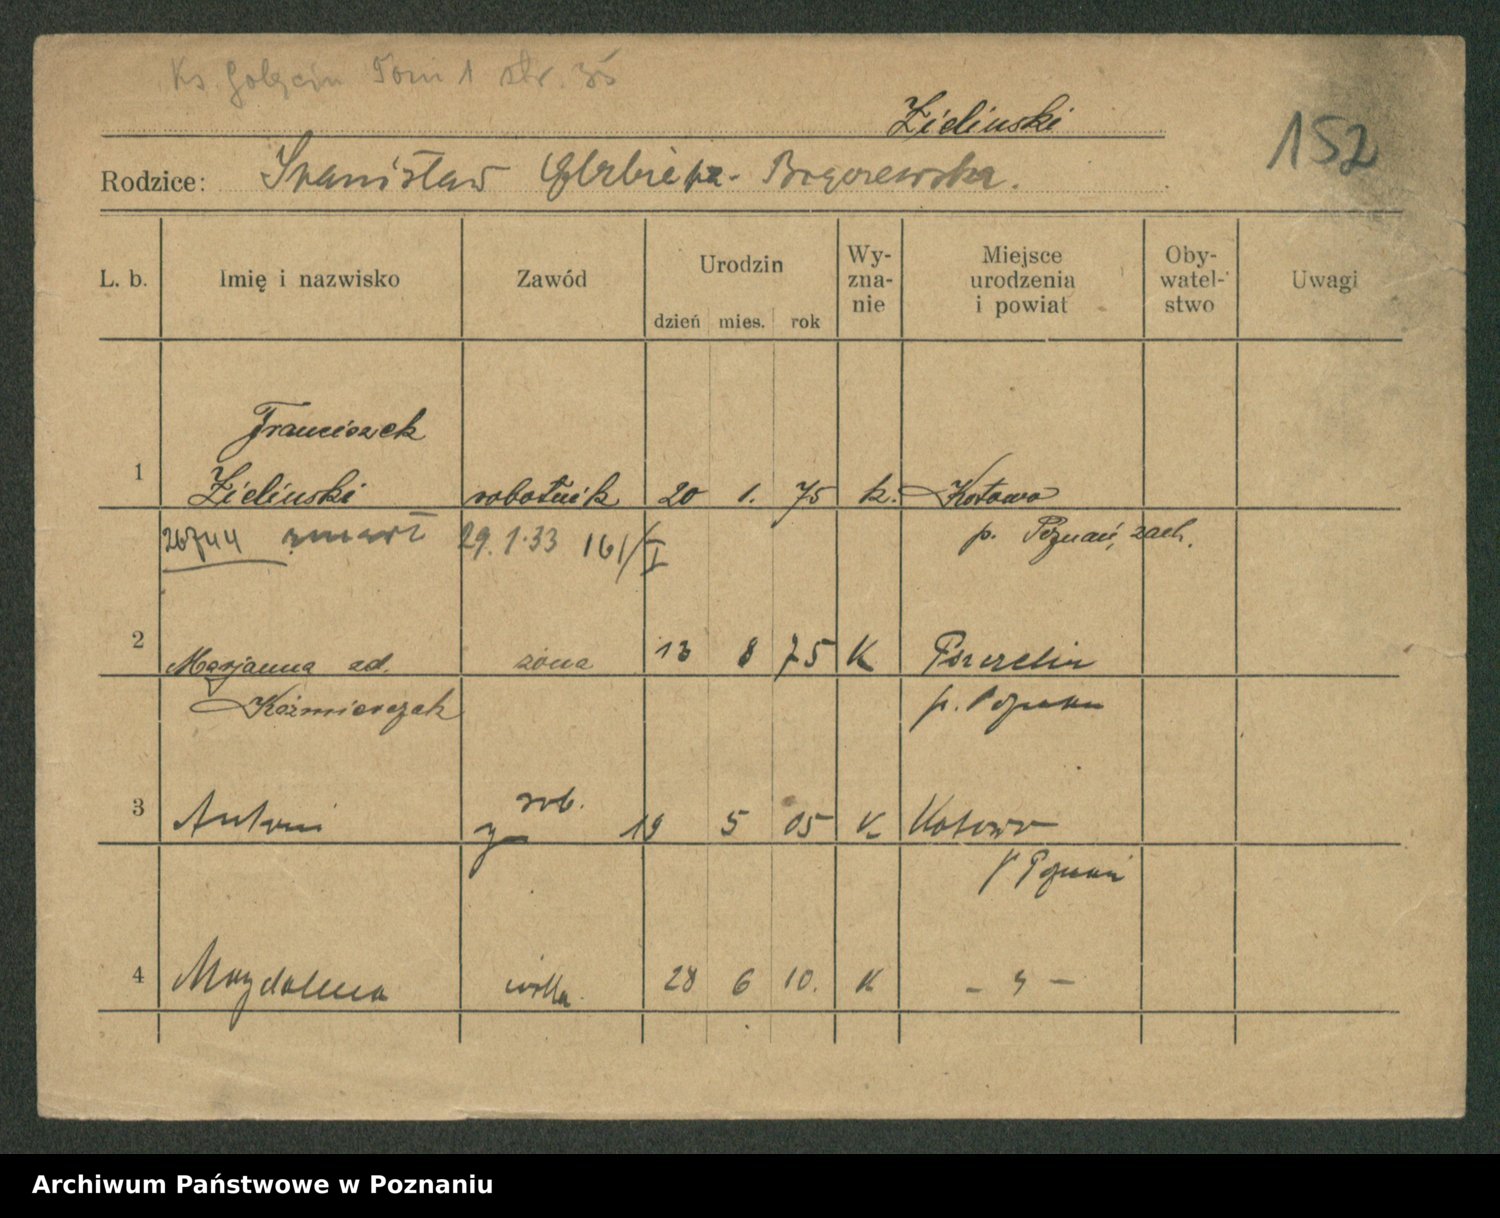 Ks. Golęcin Tom 1 str. 35
Zieliński
152
Rodzice: Stanisław Elżbieta
L. b. Imię i nazwisko Zawód Urodzin dzień mies. rok Wyznanie Miejsce urodzenia i powiat Obywatelstwo Uwagi
Franciszek
1 Zieliński robotnik 20 1. 75 k. Kotowo
26744 zmarł 29.1.33 161/I p. Poznań, zach.
2 Marjanna zd. żona 13 8 75 K
Kaźmierczak p.
3 Antoni rob. 19 5 05 K Kotowo
p Poznań
4 Magdalena córka 28 6 10. K - " -
Archiwum Państwowe w Poznaniu